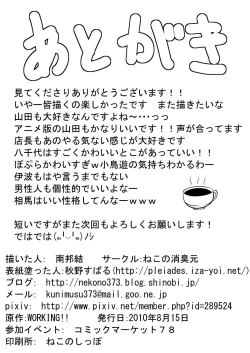 あとがき
見てくださりありがとうございます！！
いやー皆描くの楽しかったです　また描きたいな
山田も大好きなんですよね～･･･っっ
アニメ版の山田もかなりいいです！！声が合ってます
店長もあのやる気ない感じが大好きです
八千代はすごくかわいいとこがあっていい！！
ぽぷらかわいすぎｗ小鳥遊の気持ちわかるわー
伊波もはや言うまでもない
男性人も個性的でいいよなー
相馬はいい性格してんなーｗｗｗ
短いですがまた次回もよろしくお願いします！
ではでは(｡╹◡╹｡)ﾉｼ
描いた人:　南邦結　　サークル:ねこの消臭元
表紙塗った人:秋野すばる(http://pleiades.iza-yoi.net/)
ブログ:　http://nekono373.blog.shinobi.jp/
メール:　kunimusu373@mail.goo.ne.jp
pixiv:　http://www.pixiv.net/member.php?id=289524
原作:WORKING!!　　　発行日:2010年8月15日
参加イベント:　コミックマーケット７８
印刷所:　ねこのしっぽ